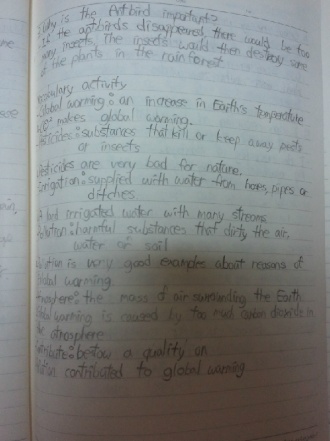 Why is the Antbird important?
If the antbirds disappeared, there would be too
many insects. The insects would then destroy some
of the plants in the rainforest.
Vocabulary activity
Global warming: an increase in Earth's temperature
makes global warming.
Pesticides: substances that kill or keep away pests
or insects
Pesticides are very bad for nature.
Irrigation: supplied with water from hoses, pipes or
ditches
irrigated water with many streams.
Pollution: harmful substances that dirty the air,
water or soil
Pollution is very good examples about reasons of
global warming
Atmosphere: the mass of air surrounding the Earth
Global warming is caused by too much carbon dioxide in
the atmosphere
Contribute: bestow a quality on
contributed to global warming